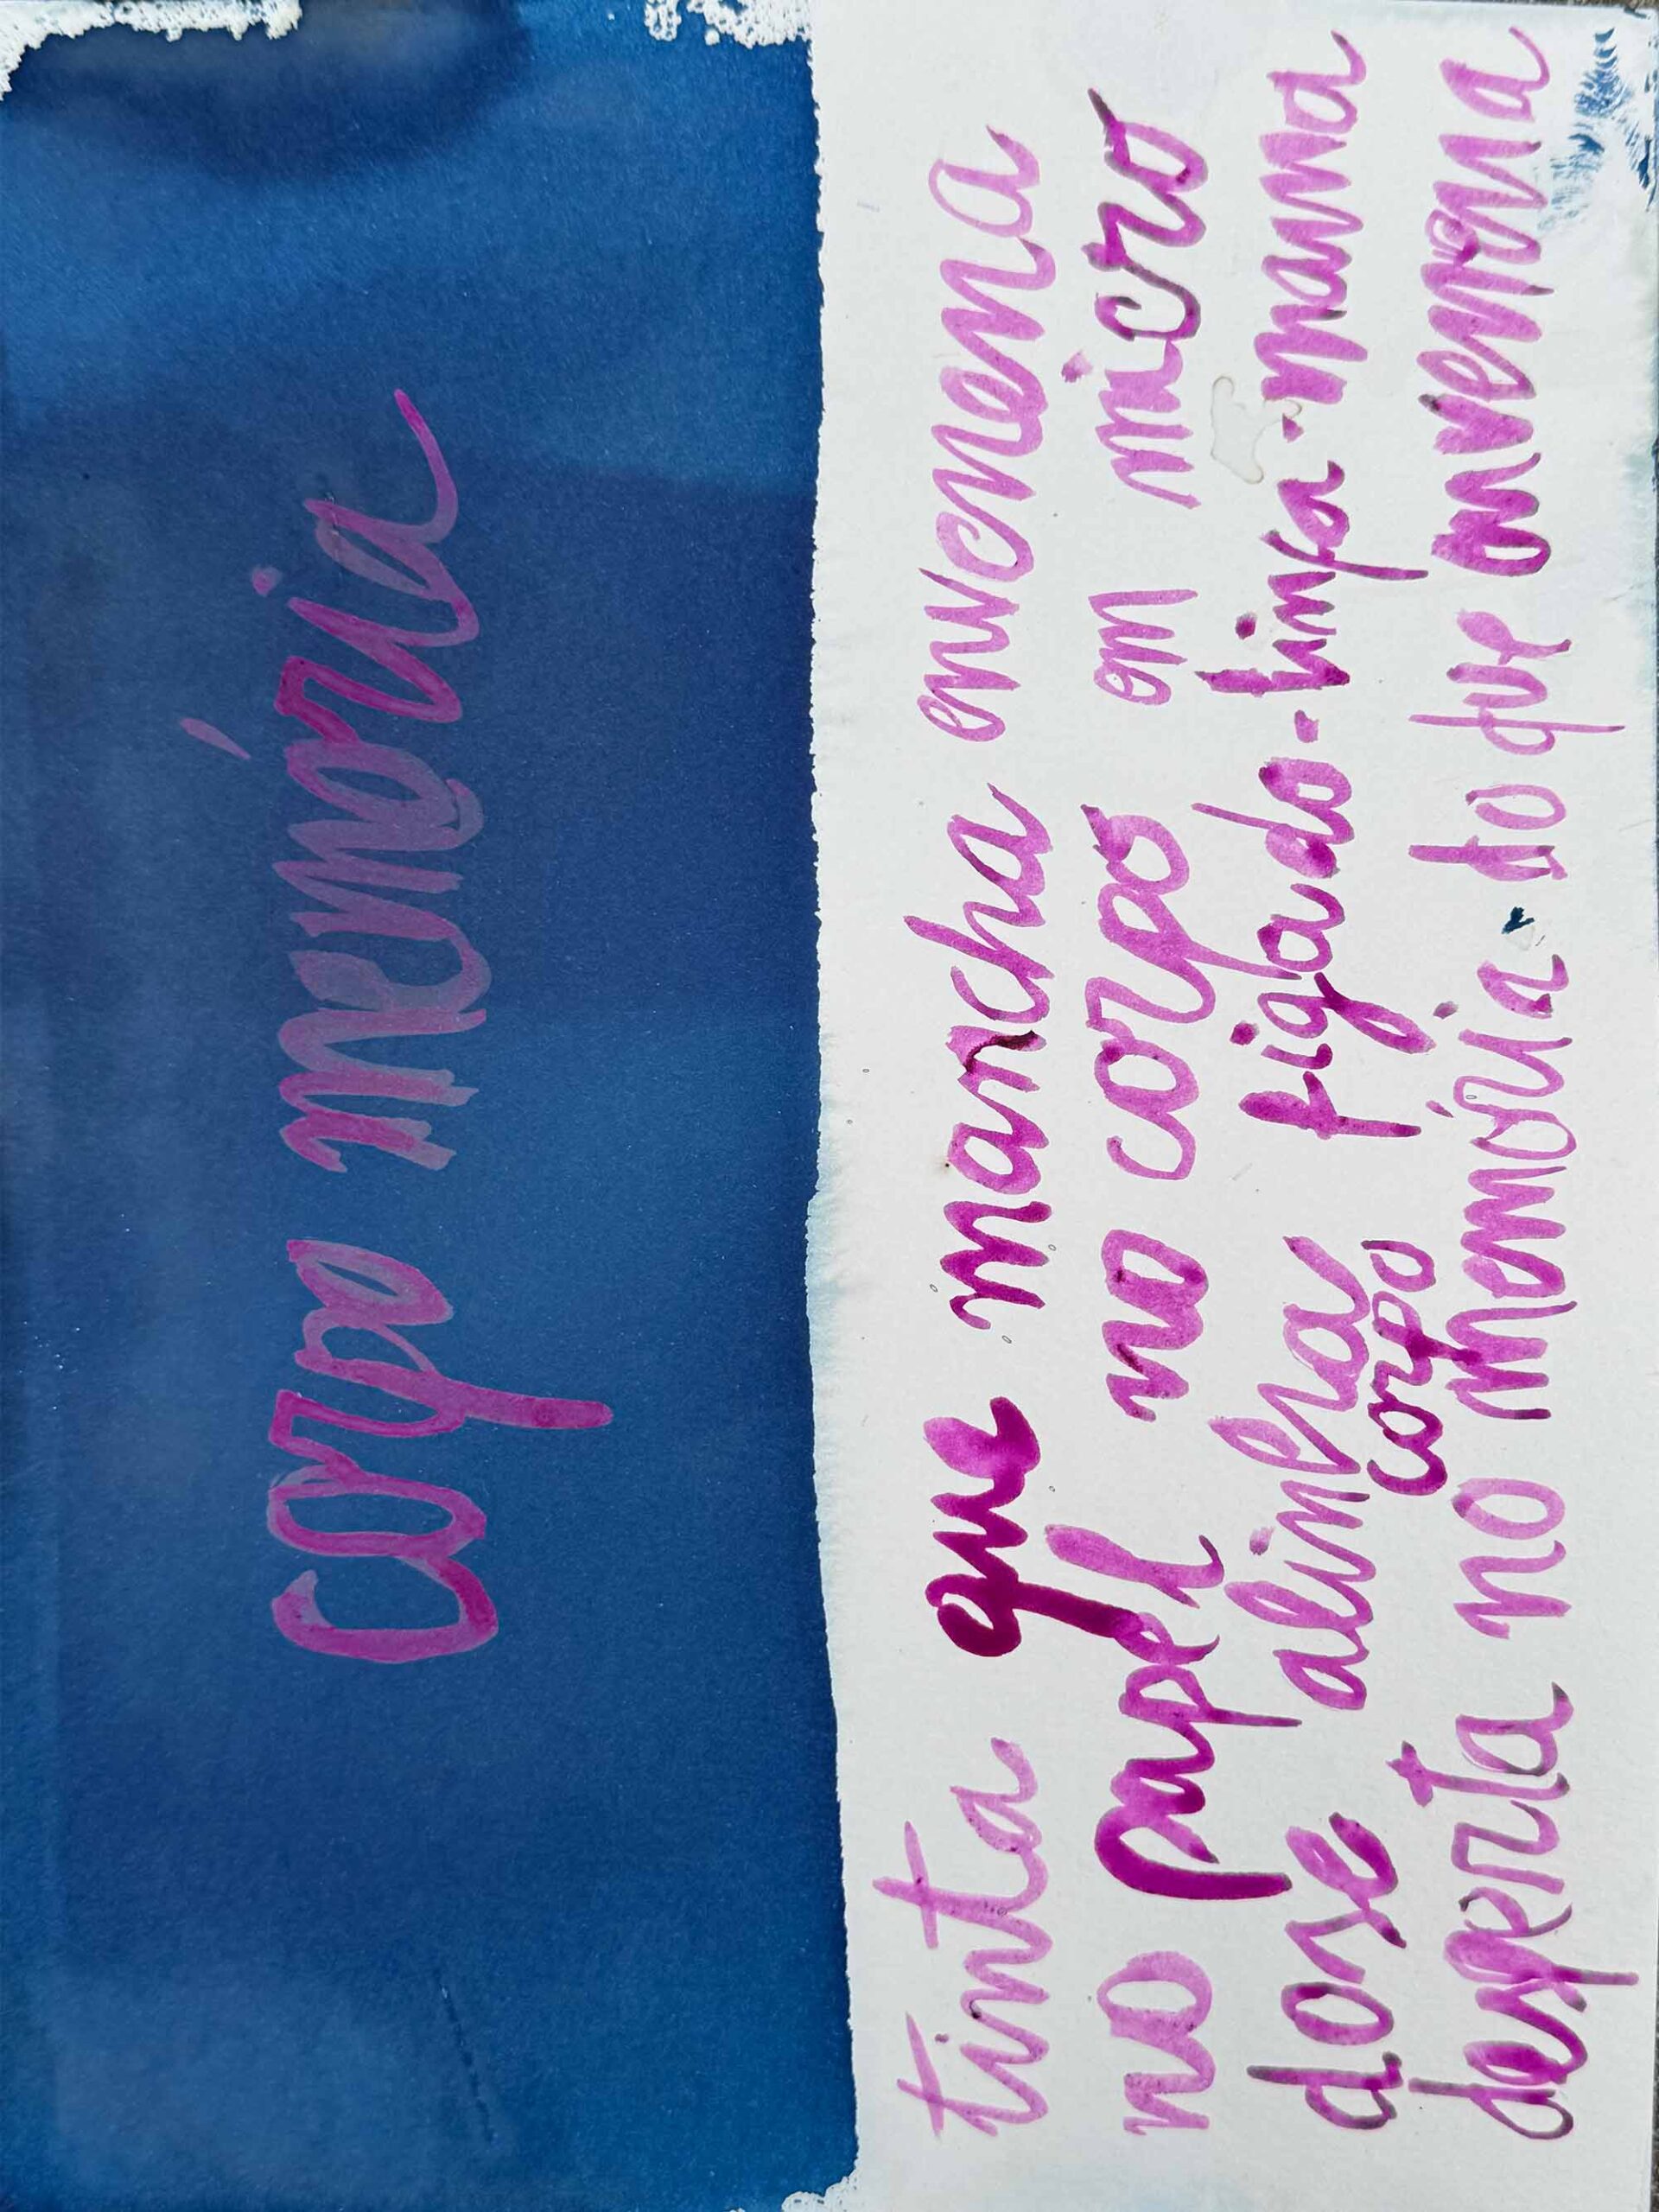 corpo memória
tinta que mancha envenena
no papel no corpo em micro
dose alinha figado-linfa-mama
corpo
desperta no memória do que envenena